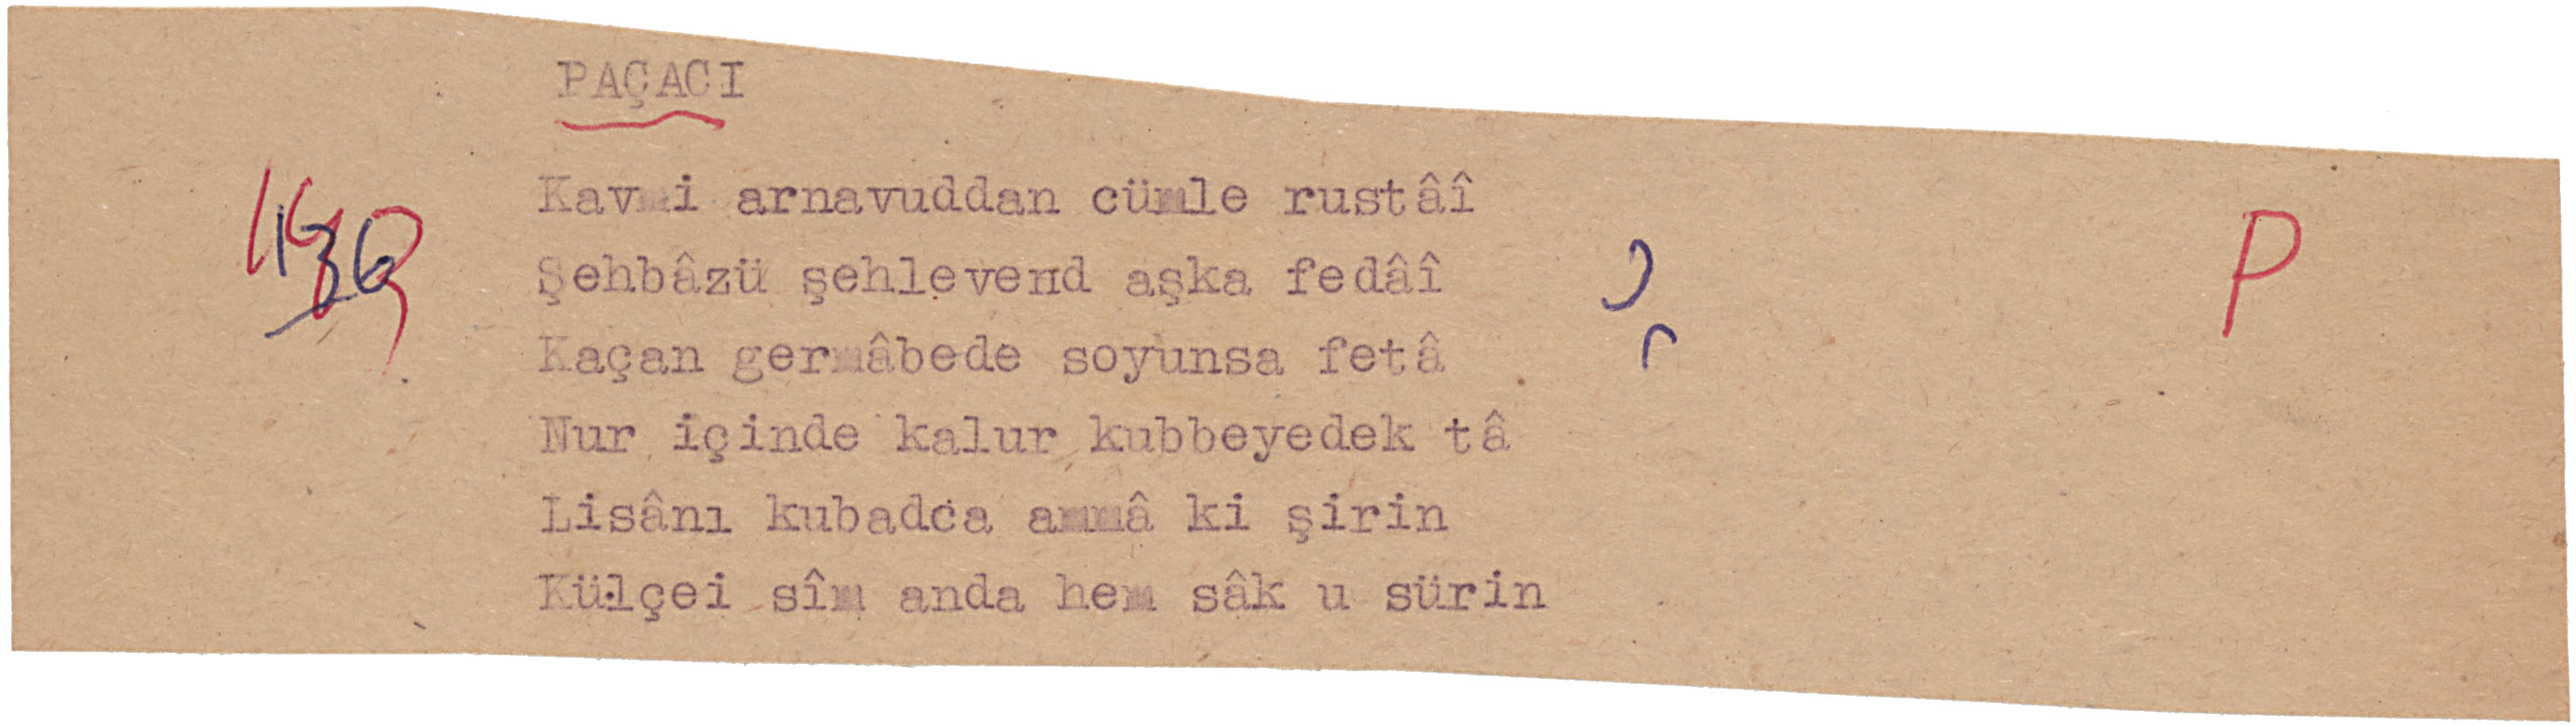 PAÇACI
Kavmi arnavuddan cümle rustâî
Şehbâzü şehlevend aşka fedâî
Kaçan germâbede soyunsa fetâ
Nur içinde kalur kubbeyedek tâ
Lisânı kubadca ammâ ki şirin
Külçei sîm anda hem sâk u sürin
P